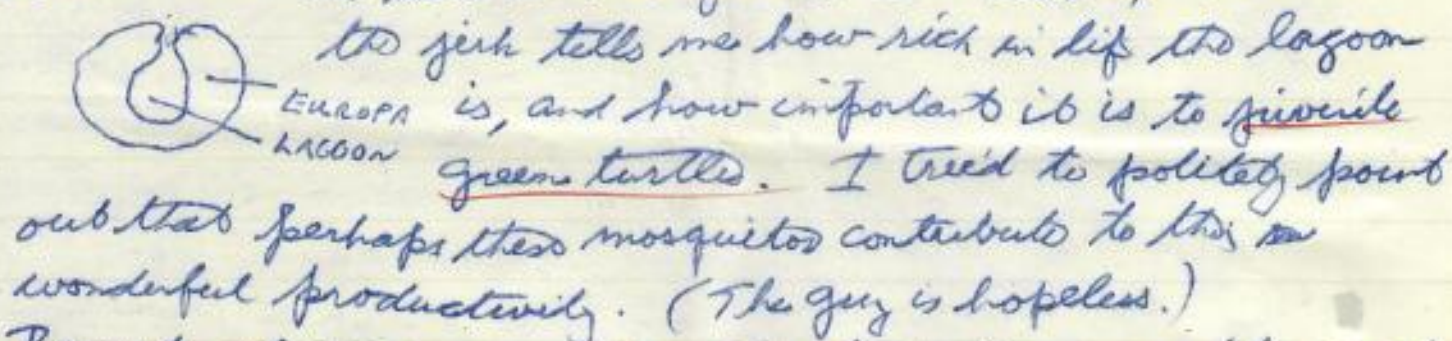 the jerk tells me how rich in life the lagoon
EUROPA is, and how important it is to juvenile
LAGOON
green turtles. I tried to politely point
out that perhaps these mosquitos contribute to this
wonderful productivity. (The guy is hopeless.)